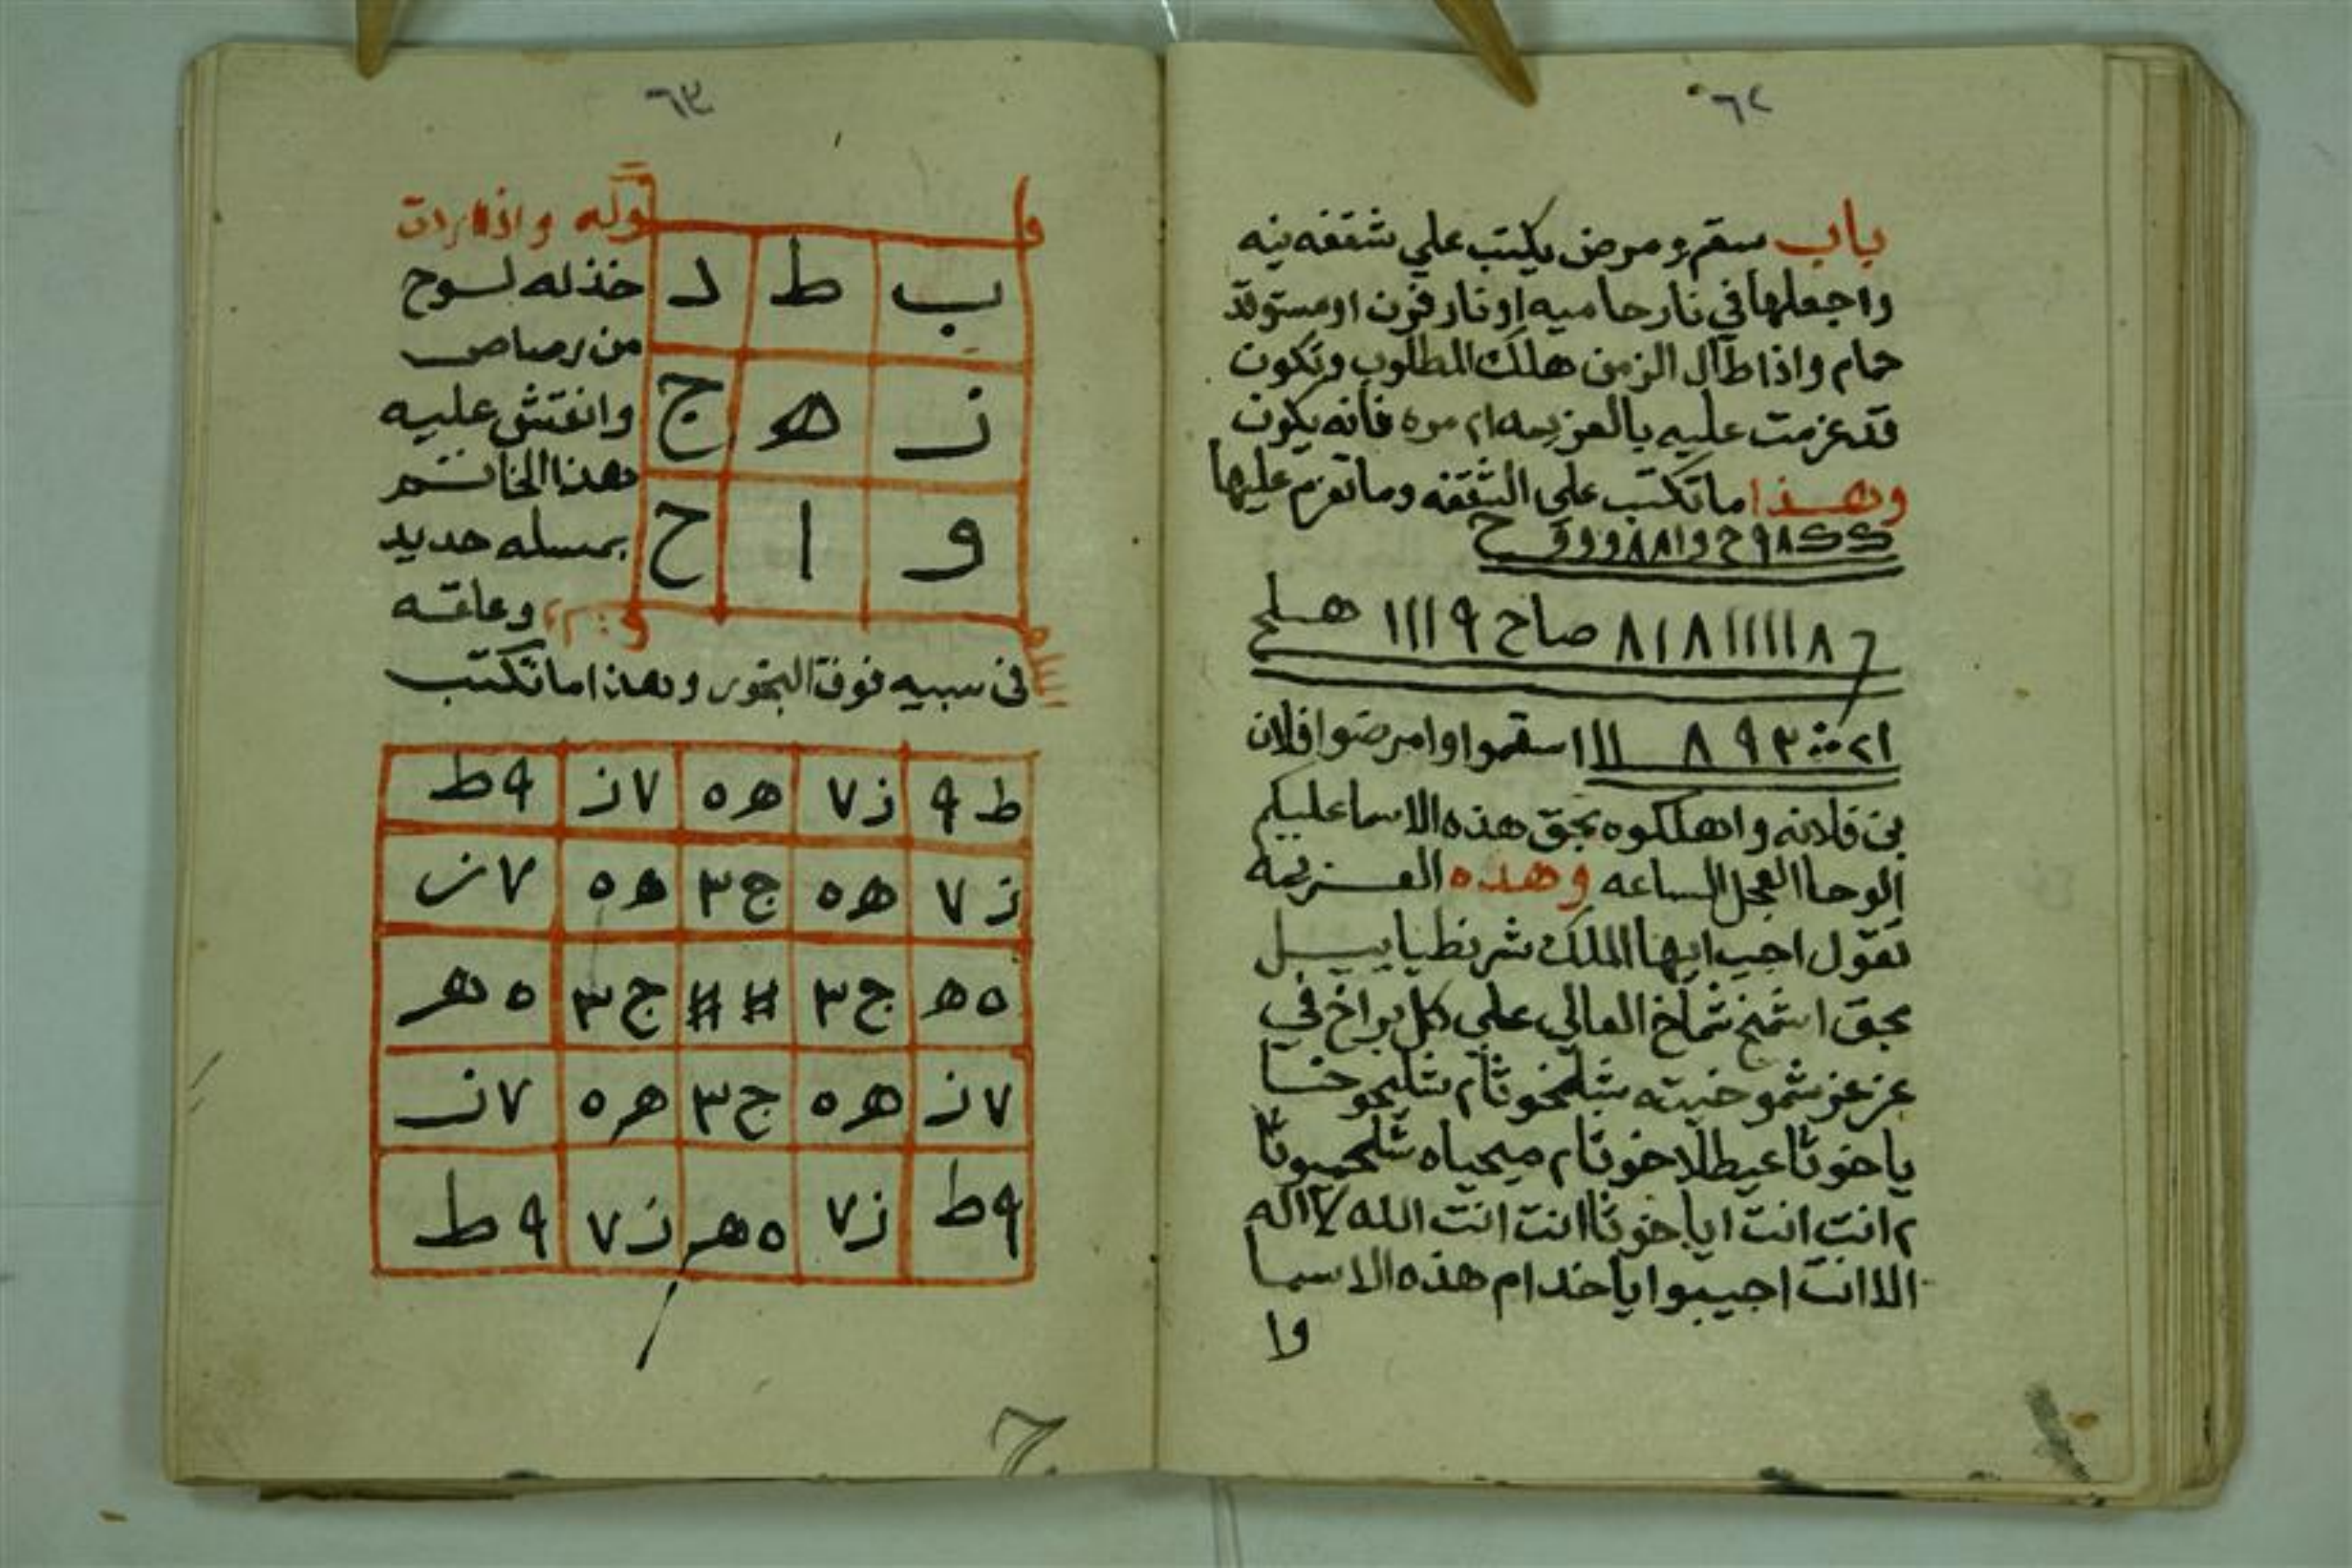 ٦٢
باب سقم ومرض يكتب علي شقفه نيه
واجعلها في نار حاميه او نار فرن او مستوقد
حمام واذا طال الزمن هلك المطلوب وتكون
قد عزمت عليه بالعزيمه ٢١ مره فانه يكون
وهذا ما تكتب علي الشقفه وما تعزم عليها
٩٨ ح و ١٨٨ و و و ح
٨ ١١١١١ ٨ ١ ٨ صاح ٩ ١١١ هلح
٢١ ٣ ٩ ٨ ااا اسقموا وامرضوا فلان
بن فلانه واهلكوه بحق هذه الاسما عليكم
الوحا العجل الساعه وهذه العزيمه
تقول اجب ايها الملك شرنطيابيل
بحق اشمخ شماخ العالي علي كل براخ في
عز عز شموخيته شلمخوثام شليموخا
ياخوثا عيطلاخوثام ميحياه
٢ انت انت اياخوثا انت انت الله لا اله
الا انت اجيبوا ياخدام هذه الاسما
وا
٦٣
وله واذا اردت
خذ له لوح
من رصاص
وانقش عليه
هذا الخاتم
بمسله حديد
وعلقه
في سيبه فوق البخور وهذا ما تكتب
ب ط د
ز ه ج
و ا ح
ط ٩ ز ٧ ه ٥ ٧ ز ٩ ط
ز ٧ ه ٥ ج ٣ ه ٥ ٧ ز
٥ ه ج ٣ # # ج ٣ ٥ ه
٧ ز ه ٥ ج ٣ ه ٥ ٧ ز
٩ ط ز ٧ ٥ ه ز ٧ ٩ ط